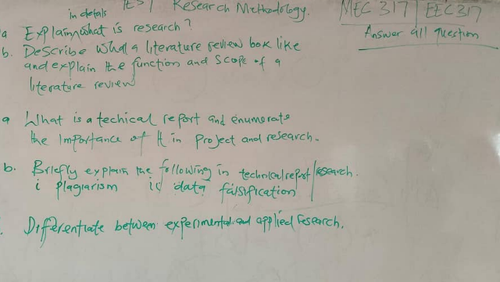 TEST Research Methodology.
MEC 317 | EEC 317
Answer all question
in details
a Explain what is research?
b. Describe what a literature review look like
and explain the function and scope of a
literature review
a What is a techical report and enumerate
the importance of it in project and research.
b. Briefly explain the following in technical report/research.
i plagiarism ii data falsification
Differentiate between experimental and applied research.